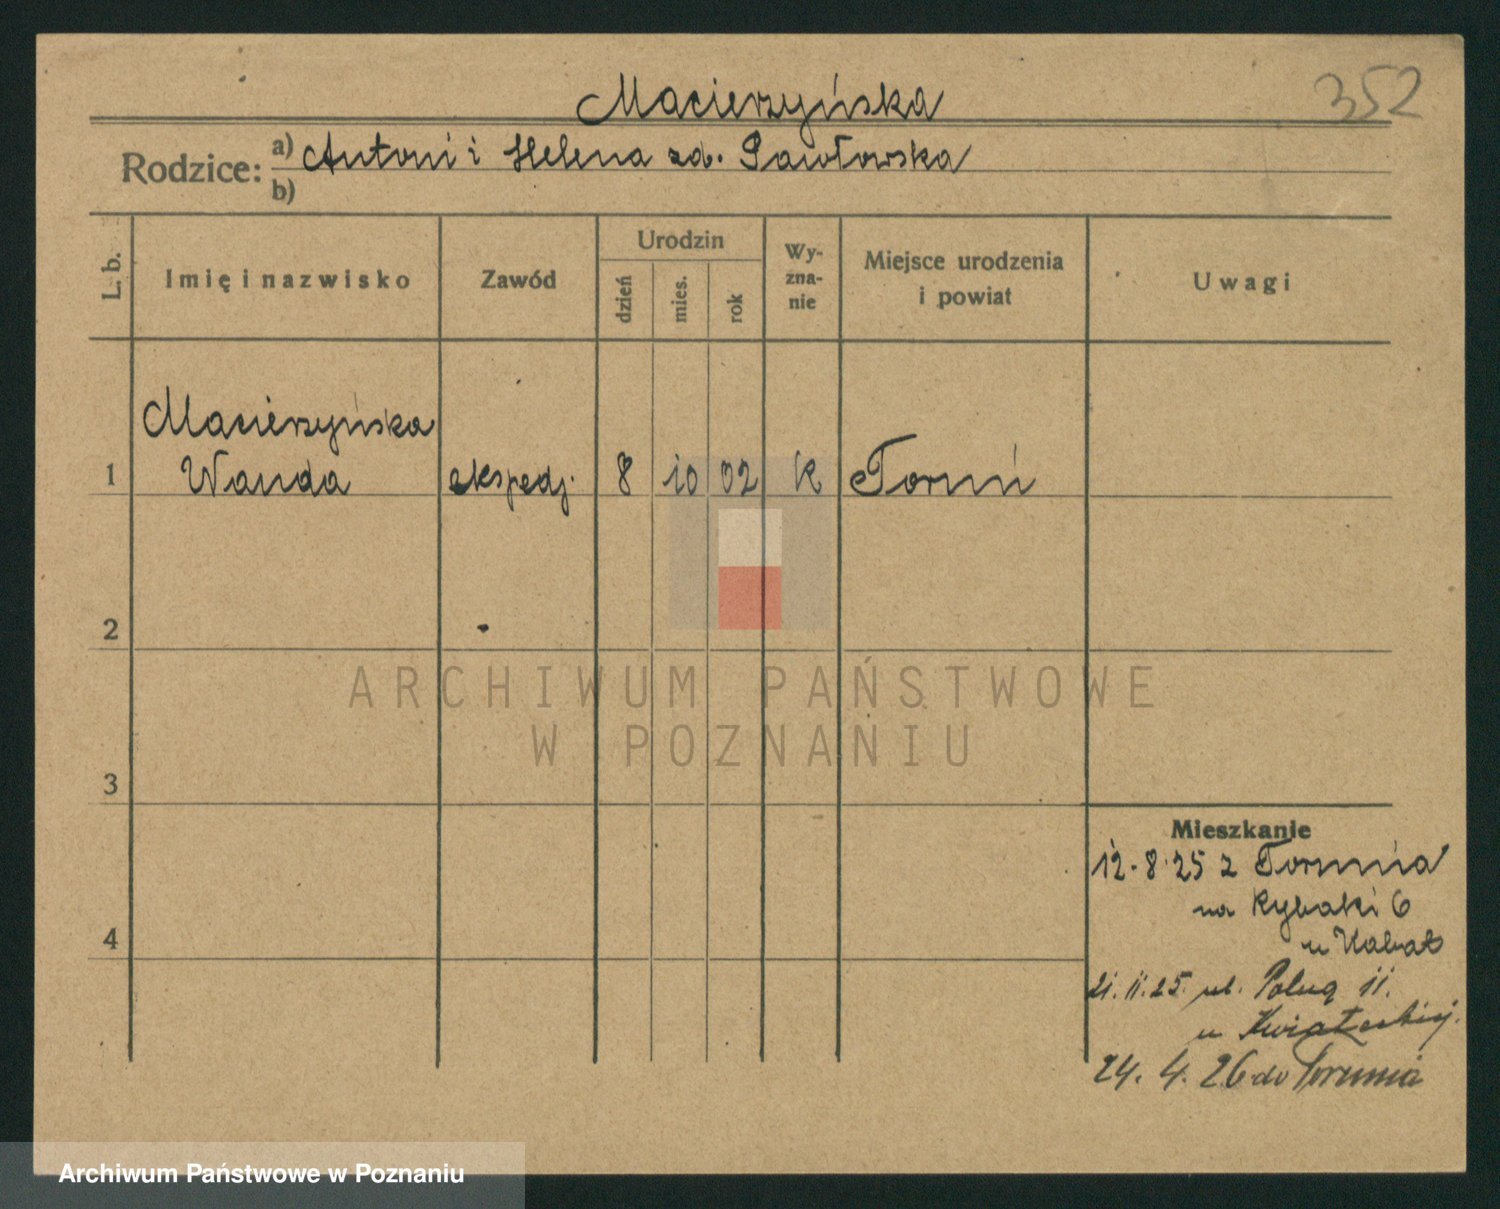 352
Macierzyńska
Rodzice: a) Antoni i Helena zd. Pawłowska
b)
L. b.
Imię i nazwisko
Zawód
Urodzin
dzień
mies.
rok
Wy-
zna-
nie
Miejsce urodzenia
i powiat
Uwagi
Macierzyńska
1 Wanda ekspedj. 8 10 02 K Toruń
2
3
4
Mieszkanie
12.8.25 z Torunia
na Rybaki 6
u Kabat
21.11.25. ul. Polną 11.
u Kwiateckiej.
24. 4. 26 do Torunia
ARCHIWUM PAŃSTWOWE
W POZNANIU
Archiwum Państwowe w Poznaniu